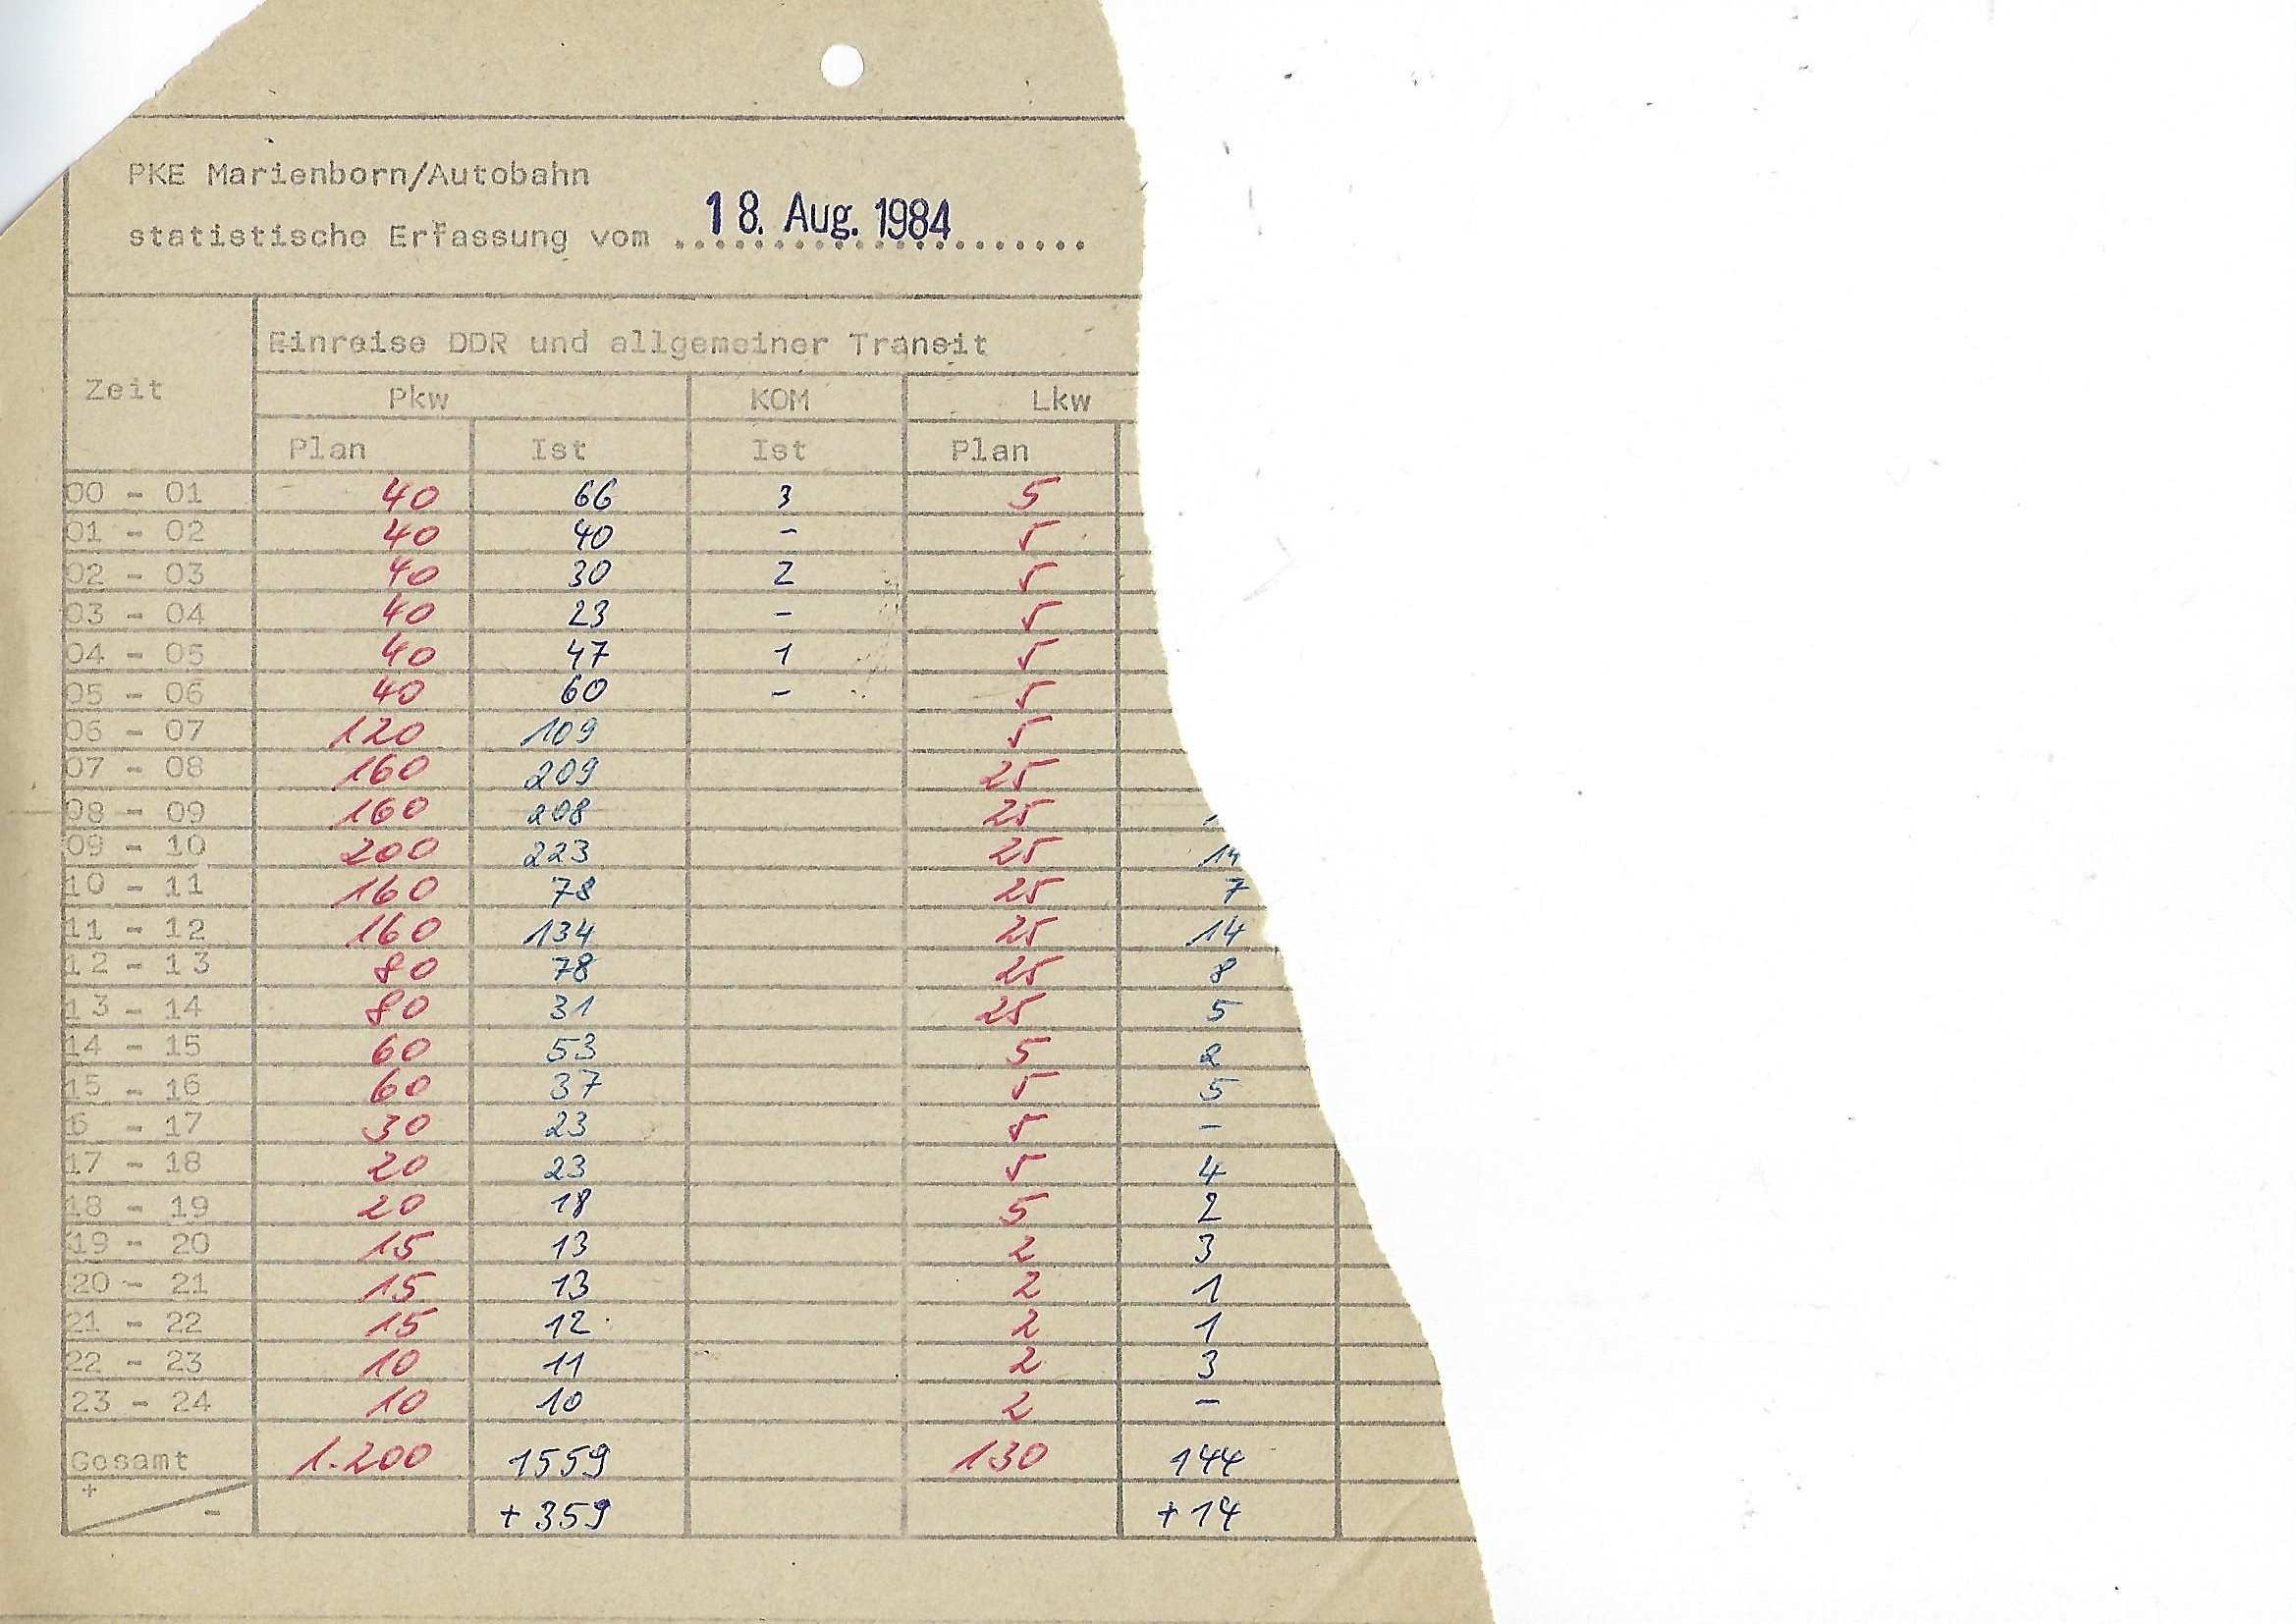 PKE Marienborn/Autobahn
statistische Erfassung vom 18. Aug. 1984
Einreise DDR und allgemeiner Transit
Zeit Pkw KOM Lkw
Plan Ist Ist Plan
00 - 01 40 66 3 5
01 - 02 40 40 - 5
02 - 03 40 30 2 5
03 - 04 40 23 - 5
04 - 05 40 47 1 5
05 - 06 40 60 - 5
06 - 07 120 109 5
07 - 08 160 209 25
08 - 09 160 208 25
09 - 10 200 223 25 14
10 - 11 160 78 25 7
11 - 12 160 134 25 14
12 - 13 80 78 25 8
13 - 14 80 31 25 5
14 - 15 60 53 5 2
15 - 16 60 37 5 5
6 - 17 30 23 5 -
17 - 18 20 23 5 4
18 - 19 20 18 5 2
19 - 20 15 13 2 3
20 - 21 15 13 2 1
21 - 22 15 12 2 1
22 - 23 10 11 2 3
23 - 24 10 10 2 -
Gesamt 1.200 1559 130 144
+ - +359 +14